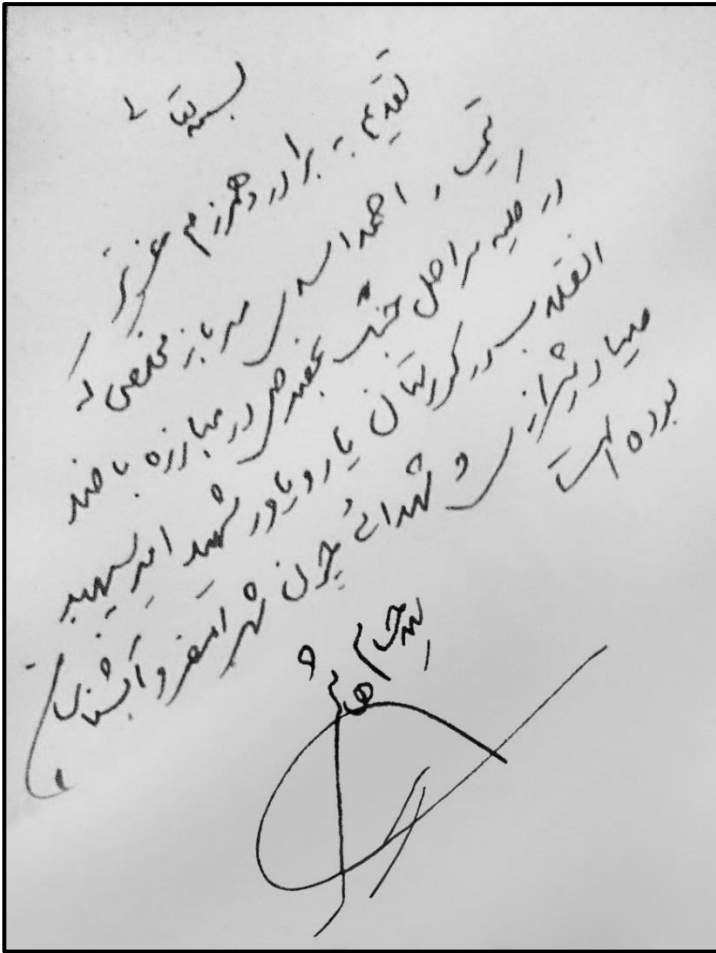 بسمه تعالی
تقدیم به برادر و همرزم عزیز
تیپ ۱ احمد اسدی سرباز مخلصی که
در کلیه مراحل جنگ بخصوص در مبارزه با ضد
انقلاب در کردستان یار و یاور شهید امیر سپهبد
صیاد شیرازی و شهدائی چون شهرامفر و آبشناسان
بوده است
سید حسام هاشمی